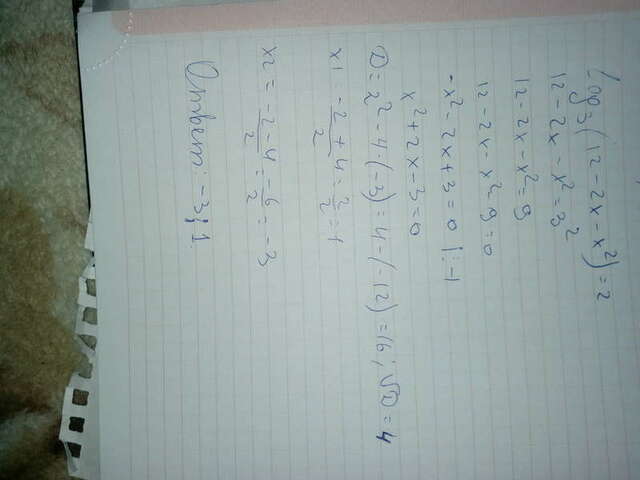 Log3(12-2x-x²)=2
12-2x-x²=3²
12-2x-x²=9
12-2x-x²-9=0
-x²-2x+3=0 |:-1
x²+2x-3=0
D=2²-4·(-3)=4-(-12)=16; √D=4
x1 = -2+4/2 = 2/2 = 1
x2 = -2-4/2 = -6/2 = -3
Ответ: -3; 1